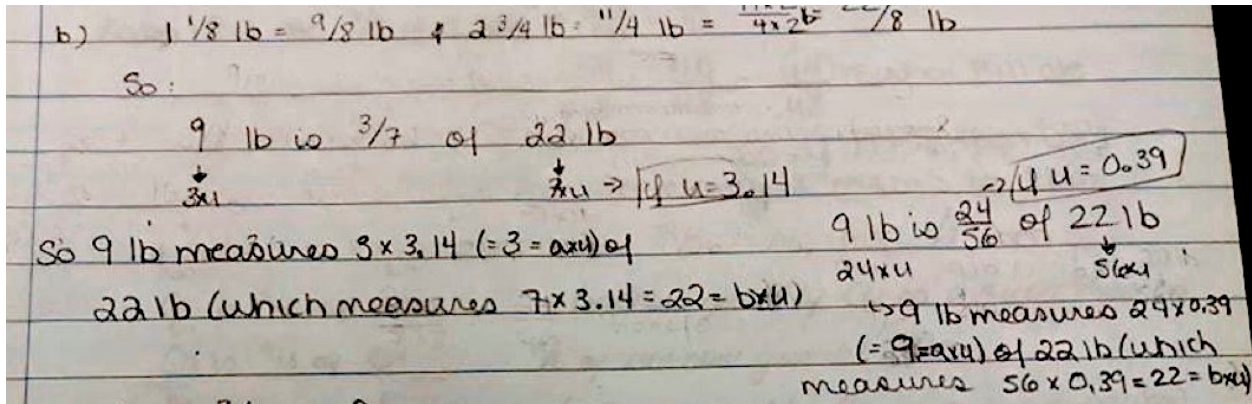 b) 1 1/8 lb = 9/8 lb & 2 3/4 lb = 11/4 lb = 4x2 /8 lb
So:
9 lb is 3/7 of 22 lb
3xu 7xu → if u=3.14
So 9 lb measures 3 x 3.14 (= 3 = axu) of
22 lb (which measures 7 x 3.14 = 22 = bxu)
→ if u = 0.39
9 lb is 24/56 of 22 lb
24xu 56xu
↳ 9 lb measures 24x0.39
(= 9 = axu) of 22 lb (which
measures 56 x 0.39 = 22 = bxu)